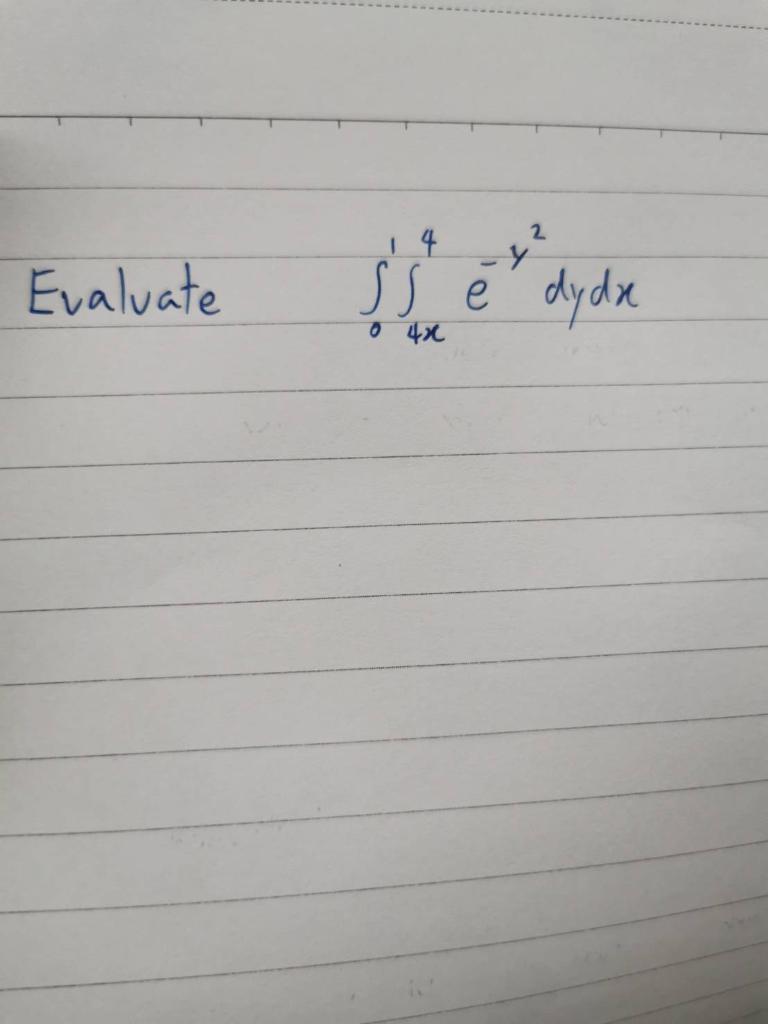 Evaluate ∫₀¹ ∫₄ₓ⁴ e^{-y²} dy dx